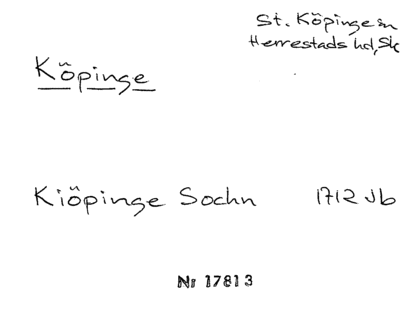 St. Köpinge sn
Herrestads hd, Sk
Köpinge
Kiöpinge Sochn 1712 Jb
Nr 17813